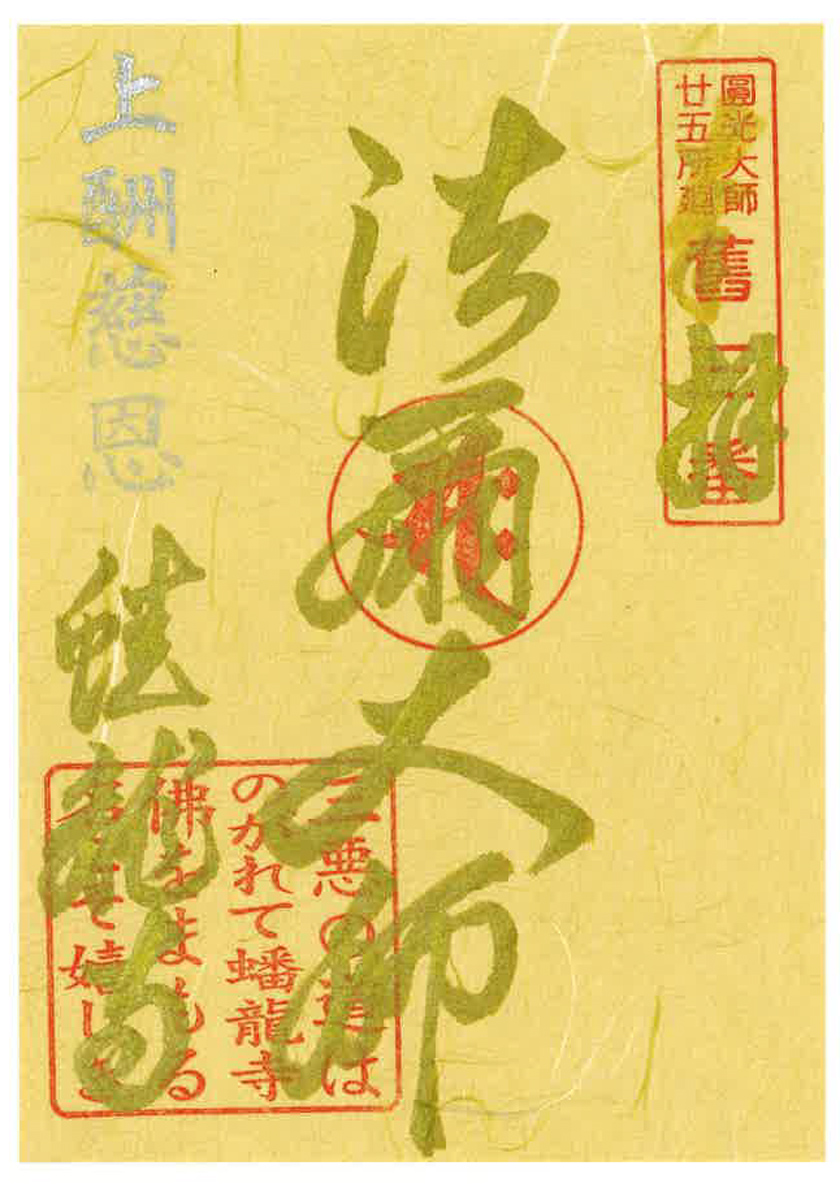 圓光大師
廿五所廻
舊
番
奉拝
法爾大師
三悪の道は
のがれて蟠龍寺
佛をまもる
嬉し
上酬慈恩
蟠龍寺